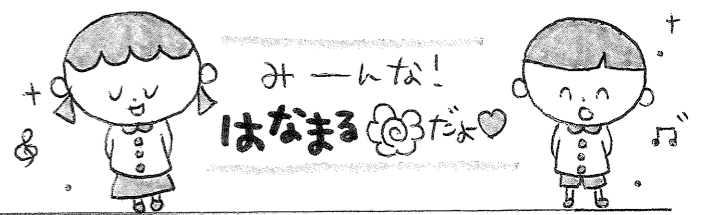 みーんな!
はなまるだよ